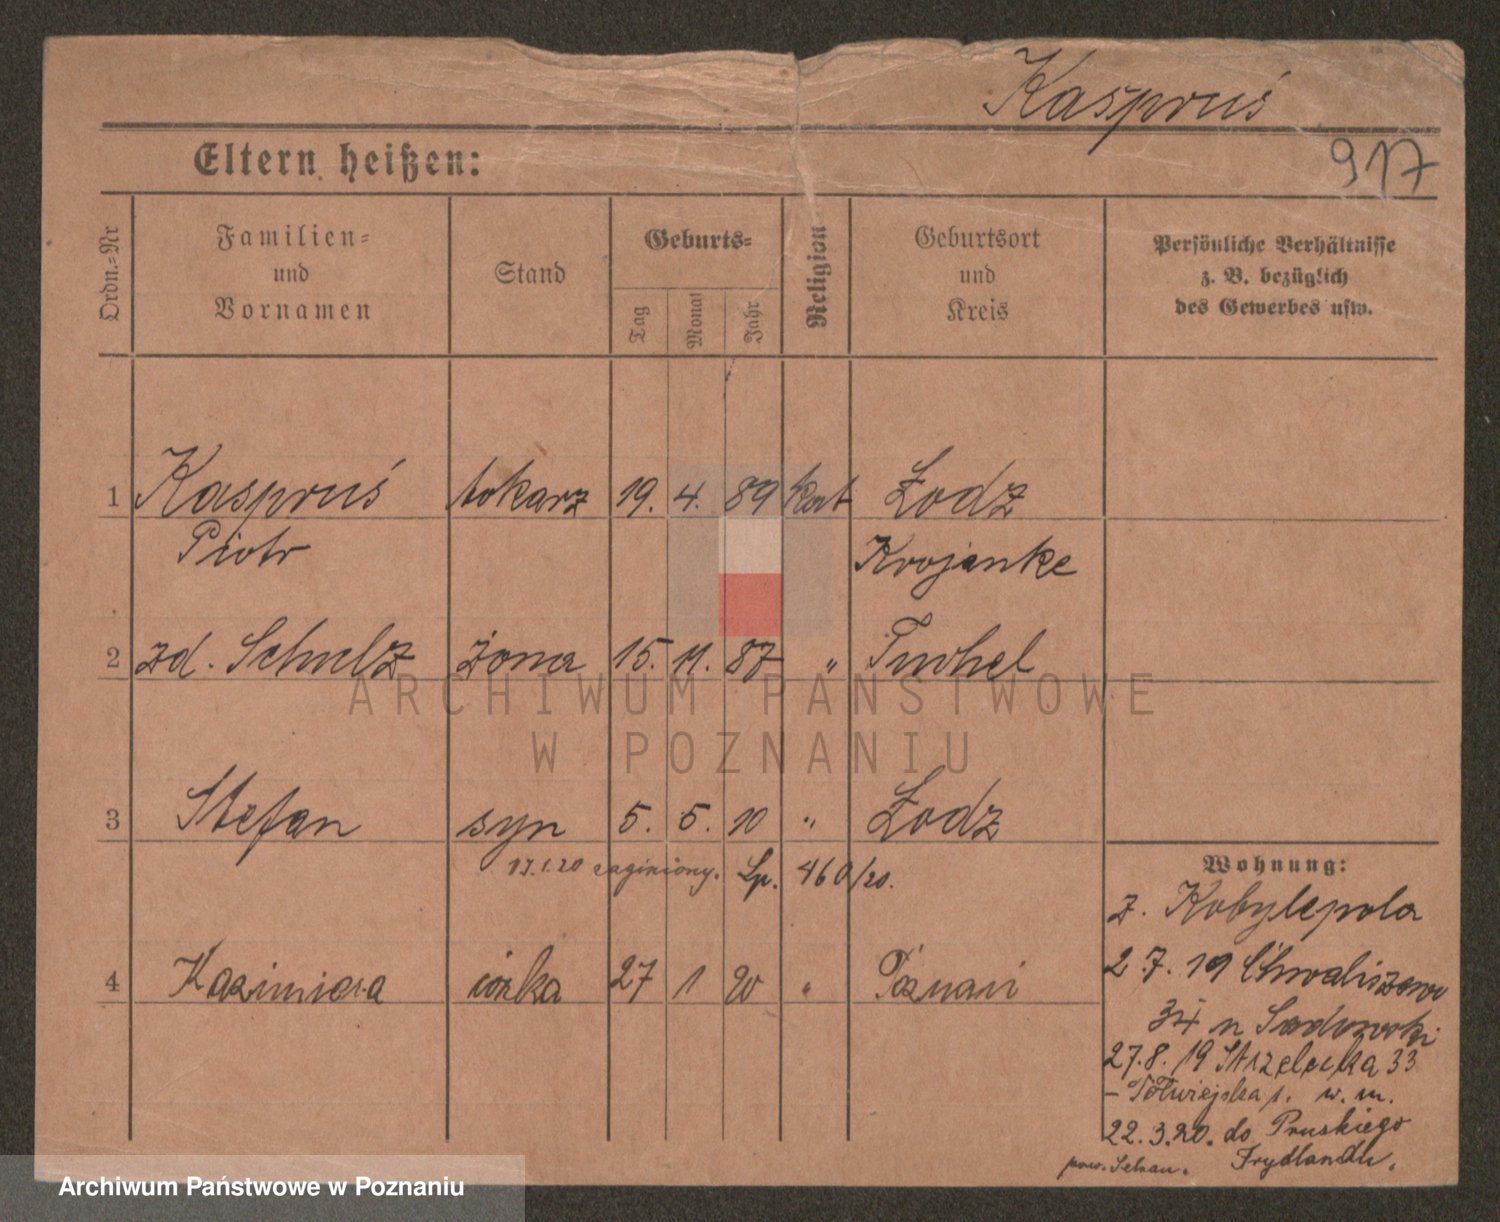 Kaspruś
Eltern heißen:
917
Ordn.=Nr
Familien=
und
Vornamen
Stand
Geburts=
Tag
Monat
Jahr
Religion
Geburtsort
und
Kreis
Persönliche Verhältnisse
z. B. bezüglich
des Gewerbes usw.
1 Kaspruś tokarz 19. 4. 89 kat Łodz
Piotr Krojanke
2 zd. Schulz żona 15. 11. 87 " Tuchel
3 Stefan syn 5. 5. 10 " Łodz
17.1.20 zaginiony. Lp. 460/20.
4 Kazimiera córka 27 1 20 " Poznań
Wohnung:
z. Kobylepola
2.7.19 Chwaliszewo
n Sadowski
27.8.19 Strzelecka 33
- Półwiejska w. m.
22.3.20. do Pruskiego
pow. Frydlandu.
ARCHIWUM PAŃSTWOWE
W POZNANIU
Archiwum Państwowe w Poznaniu